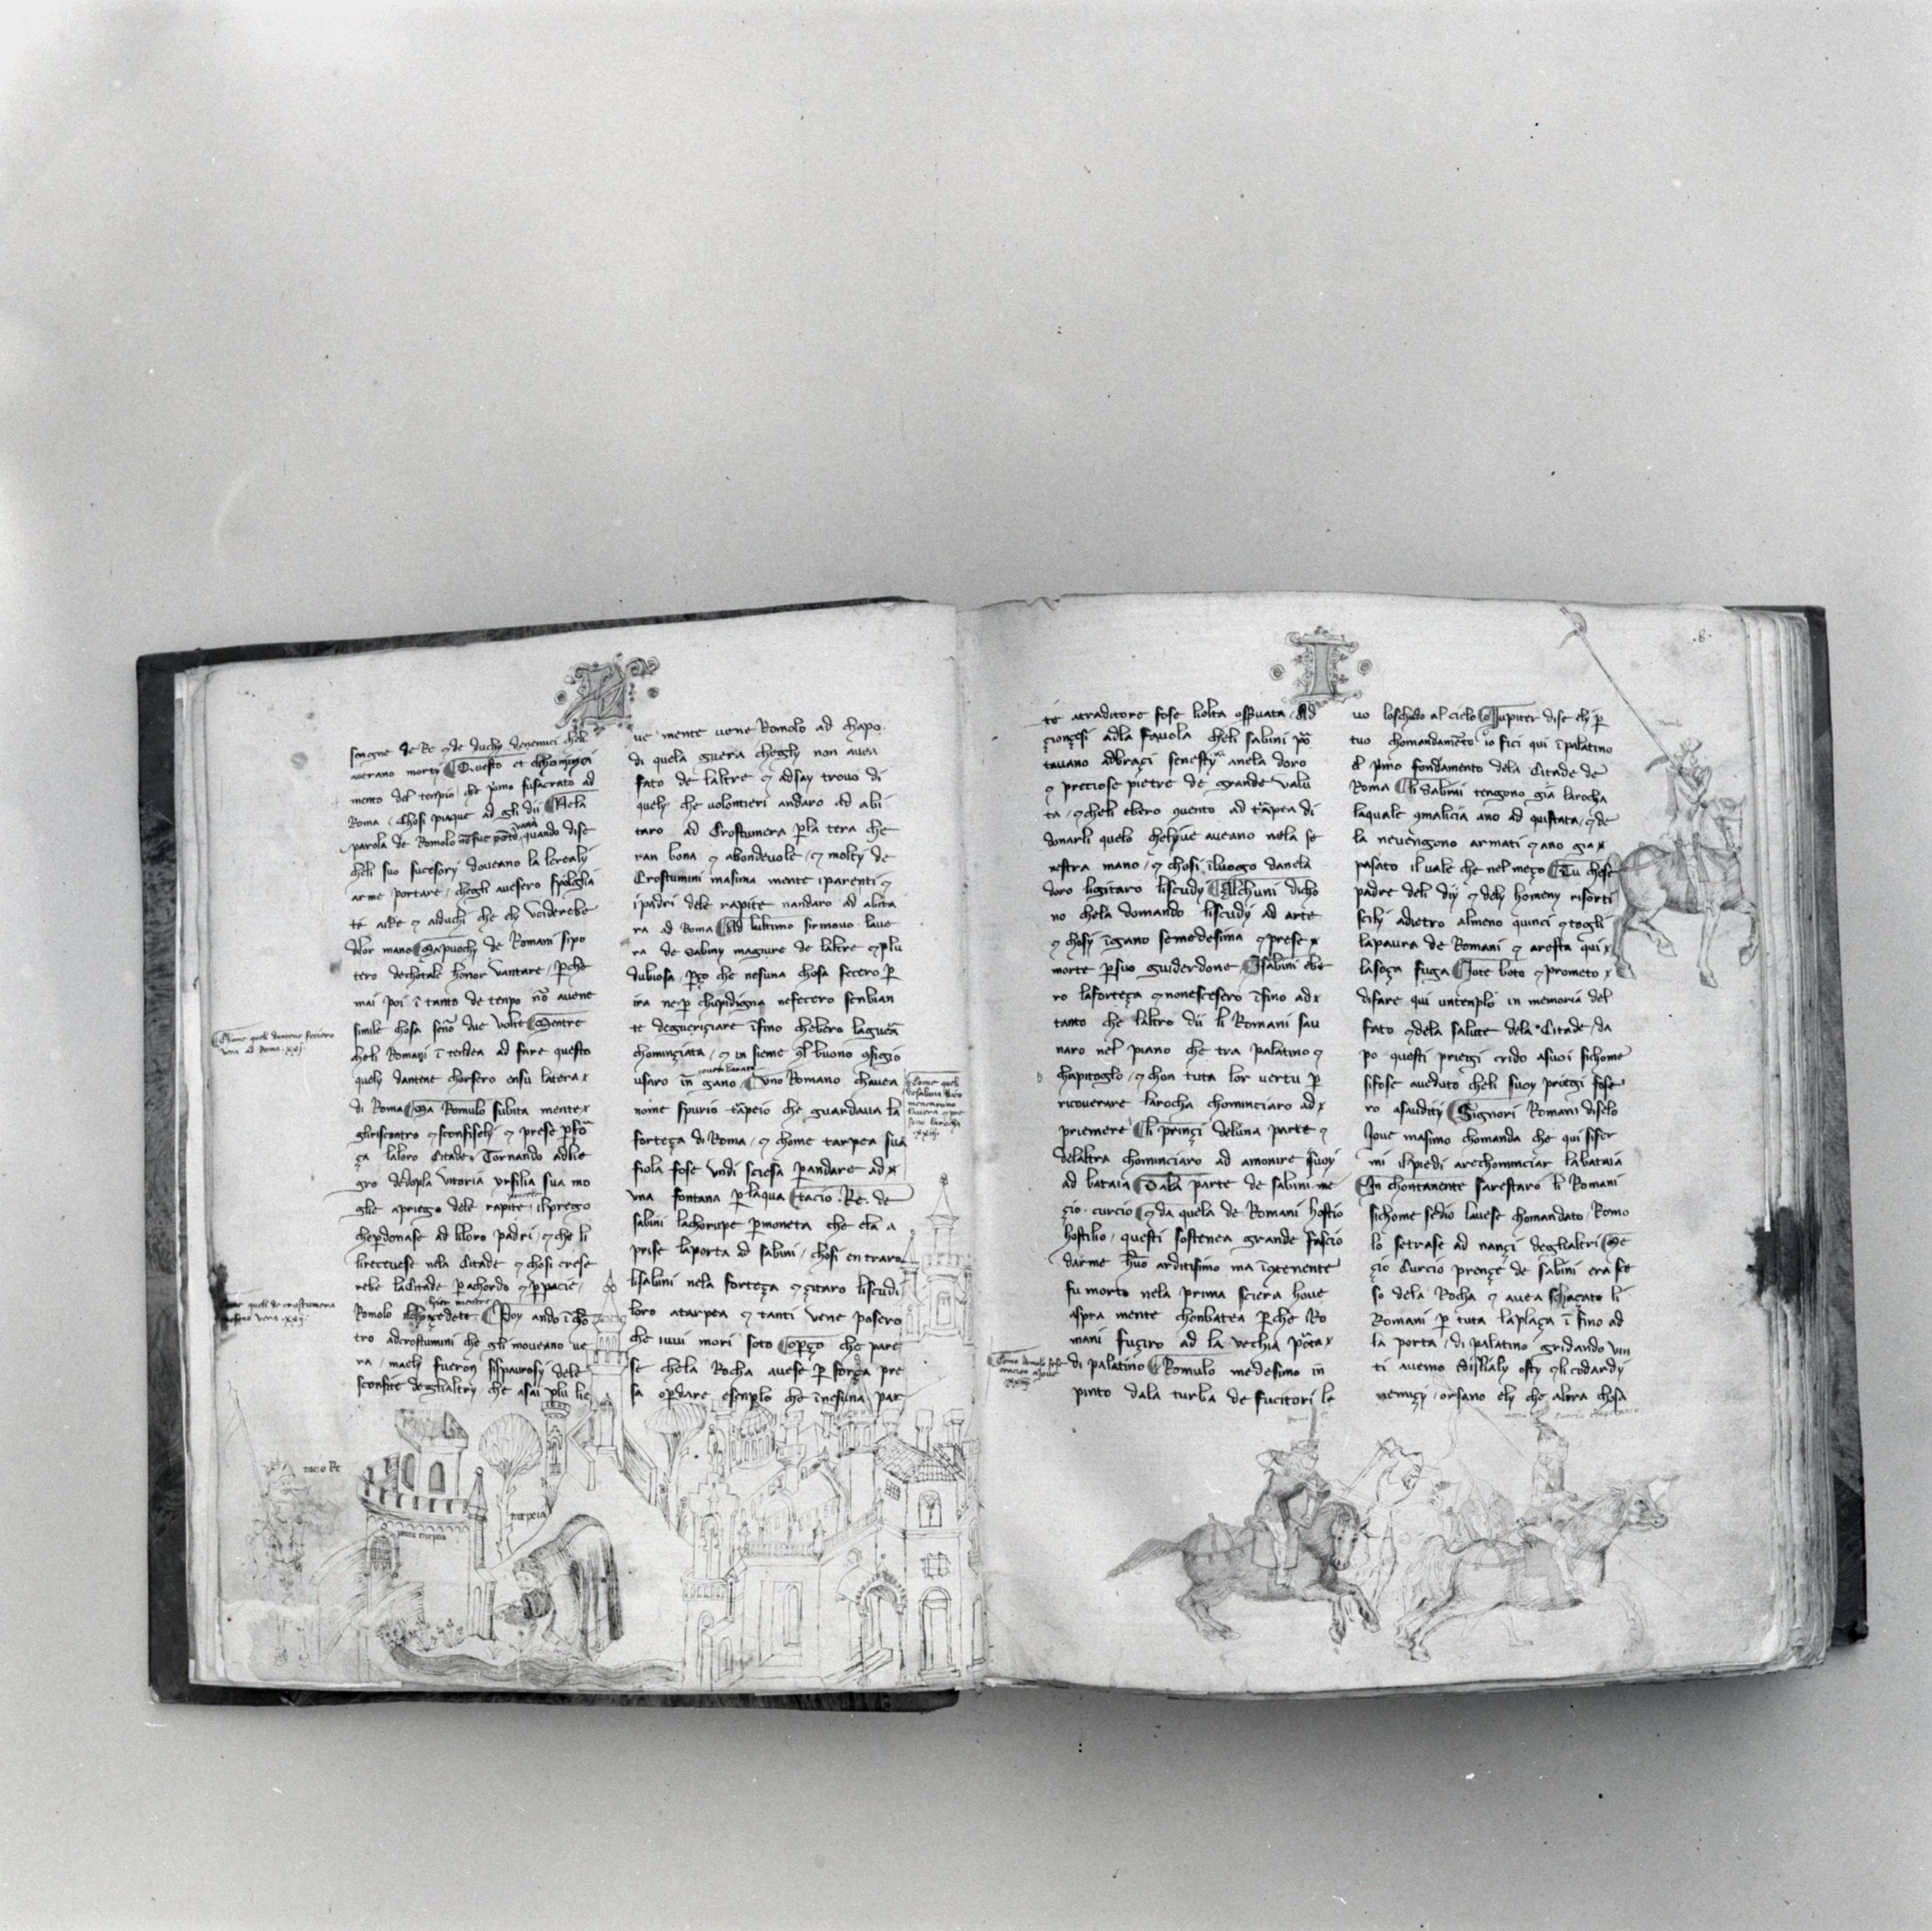 ſengne de Re ⁊ de duchy denemici cheli
averano morty Questo et chominça
mento del tenpio che pimo fusacrato ad
Roma Chosi piaque ad gli dii Nela
parola de Romolo quando dise
cheli suo sucesory doveano la lerealy
arme portare chegli avesero spolglia
te aire ⁊ aiduchi che ely uciderebe
delor mano Sapuochy de Romani sipo
tero dechotale honor vantare perche
mai poi ĩ tanto de tenpo nõ avene
simile chosa senõ due volte Mentre
cheli Romani ĩ tendea ad fare questo
quely dantene chorsero ensu latera
di Roma Ma Romulo subita mente
gliriscontro ⁊ sconfischy ⁊ prese
ça laloro Citade Tornando adlie
gro dedopla vitoria ursilia sua mo
glie apriego dele rapite ilprego
cheperdonase ad liloro padri ⁊ che li
lirecevese nela Citade ⁊ chosi crese
rebe laCitade per achordo ⁊ per pacie
Romolo Poy ando
tro adcrostumini che gli moveano ve
ra macly fueron sispaurosy dele
sconfite deglialtry che asai plu lie
Chome queli dantene feciero
vera ad Roma .xxj.
queli de crostumera
vera .xxij.
ve mente vene Romolo ad chapo
di quela guera chegly non avea
fato de laltre ⁊ adsay trovo di
quely che volontieri andaro ad abi
taro ad Crostumera perla tera che
ran bona ⁊ abondevole ⁊ molty de
Crostumini masima mente iparenti ⁊
ipadri dele rapite nandaro ad abita
ra ad Roma Ad lultimo sirmovo lave
ra de Sabiny magiure de laltre ⁊ plu
dubiosa perço che nesuna chosa fecero per
ira neper chupidigna nefecero senbian
te degueriçiare ĩsino chebero laguera
chominçiata ⁊ in sieme ql buono 9sigio
usaro in gano Uno Romano chavea
nome spurio tãpeio che guardava la
forteça di Roma ⁊ chome tarpea sua
fiola fose undi sciesa per andare ad
una fontana per laqua tacio Re de
sabini lachorupe per moneta che ela a
prise laporta ad sabini chosi entraro
lisabini nela forteça ⁊ gitaro liscudi
loro atarpea ⁊ tanti vene posero
che ivui mori soto operço che pare
se chela Rocha avese per força pre
sa operdare esenplo che inesuna par
Come queli
desabina
tacio Re
tarpeia
porta tarpea
te atraditore fose liolta osservata Ad
çionçesi adla favola cheli sabini por
tavano adbraçi senestry anela doro
⁊ preciose pietre de grande valu
ta ⁊ cheli ebero quento ad tãpea di
donarli quelo chelyve aveano nela se
nestra mano ⁊ chosi iluogo danela
doro ligitaro liscudy Alchuni dicho
no chela domando liscudy ad arte
⁊ chosy ĩgano semedesima ⁊ prese
morte persuo guiderdone Isabini ebe
ro laforteça ⁊ nonescesero ĩsino ad
tanto che laltro dii li Romani sau
naro nel piano che tra palatino ⁊
chapitoglo ⁊ chon tuta lor vertu per
ricoverare larocha chominciaro ad
priemere li prinçi deluna parte ⁊
delaltra chominciaro ad amonire suoy
ad bataia Dala parte de sabini me
çio curcio ⁊ da quela de Romani hostio
hostilio questi sostenea grande fascio
darme huõ arditisimo ma ĩ9tenente
fu morto nela prima sciera hove
aspra mente chonbatea perche Ro
mani fugiro ad la vechia porta
di palatino Romulo medesimo in
pinto dala turba de fucitori le
Como Romolo fece
oracion a Jove
.xxiiij.
.8.
vo loschudo al cielo O Jupiter dise ely per
tuo chomandamẽto io fici qui ĩ palatino
el pimo fondamento dela Citade de
Roma Li Sabini tengono gia larocha
laquale 9malicia ano ad quistata ⁊ de
la nevengono armati ⁊ ano gia
pasato il vale che nel meço Tu chose
padre deli dij ⁊ dely homeny risorti
scily adietro almeno quinci ⁊ togli
lapaura de Romani ⁊ aresta qui
laseça fuga Jote boto ⁊ prometo
difare qui untenplo in memoria del
fato ⁊ dela salute dela Citade da
po questi priegi crido asuoi sichome
sifose aveduto cheli suoy priegi fose
ro asaudity Signori Romani diselo
Jove masimo chomanda che qui sifer
mi ilpiedi arechominciar labataia
In chontanente sarestaro li Romani
sichome selio lavese chomandato Romo
lo setrase ad nançi deglialtri Me
çio Curcio prençe de sabini era sce
so dela Rocha ⁊ avea schaçato li
Romani per tuta laplaça ĩ sino ad
la porta di palatino gridando vin
ti avemo disliali osty ⁊ li codardy
nemiçy orsano ely che altra chosa